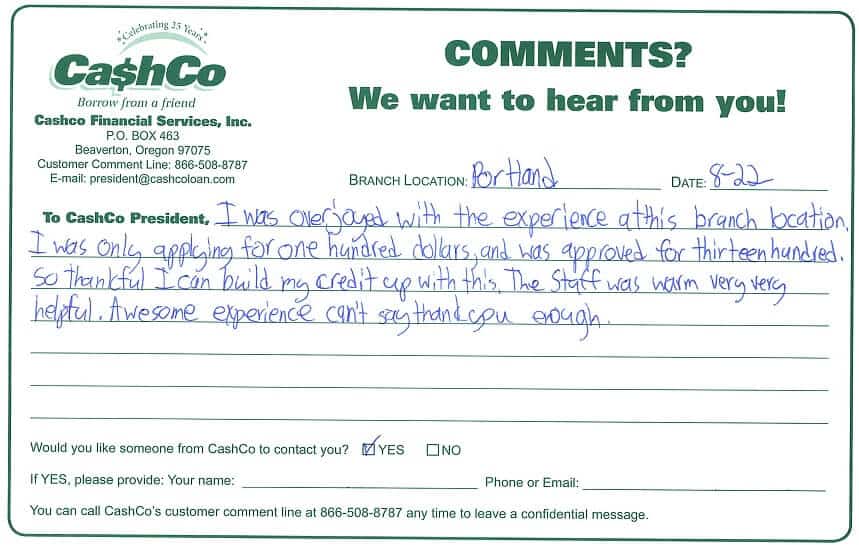 Celebrating 25 Years
Ca$hCo
Borrow from a friend
Cashco Financial Services, Inc.
P.O. BOX 463
Beaverton, Oregon 97075
Customer Comment Line: 866-508-8787
E-mail: president@cashcoloan.com
COMMENTS?
We want to hear from you!
BRANCH LOCATION: Portland DATE: 8-22
To CashCo President, I was overjoyed with the experience at this branch location.
I was only applying for one hundred dollars, and was approved for thirteen hundred.
So thankful I can build my credit up with this. The Staff was warm very very
helpful. Awesome experience can't say thank you enough.
Would you like someone from CashCo to contact you? ☑ YES ☐ NO
If YES, please provide: Your name: Phone or Email:
You can call CashCo's customer comment line at 866-508-8787 any time to leave a confidential message.